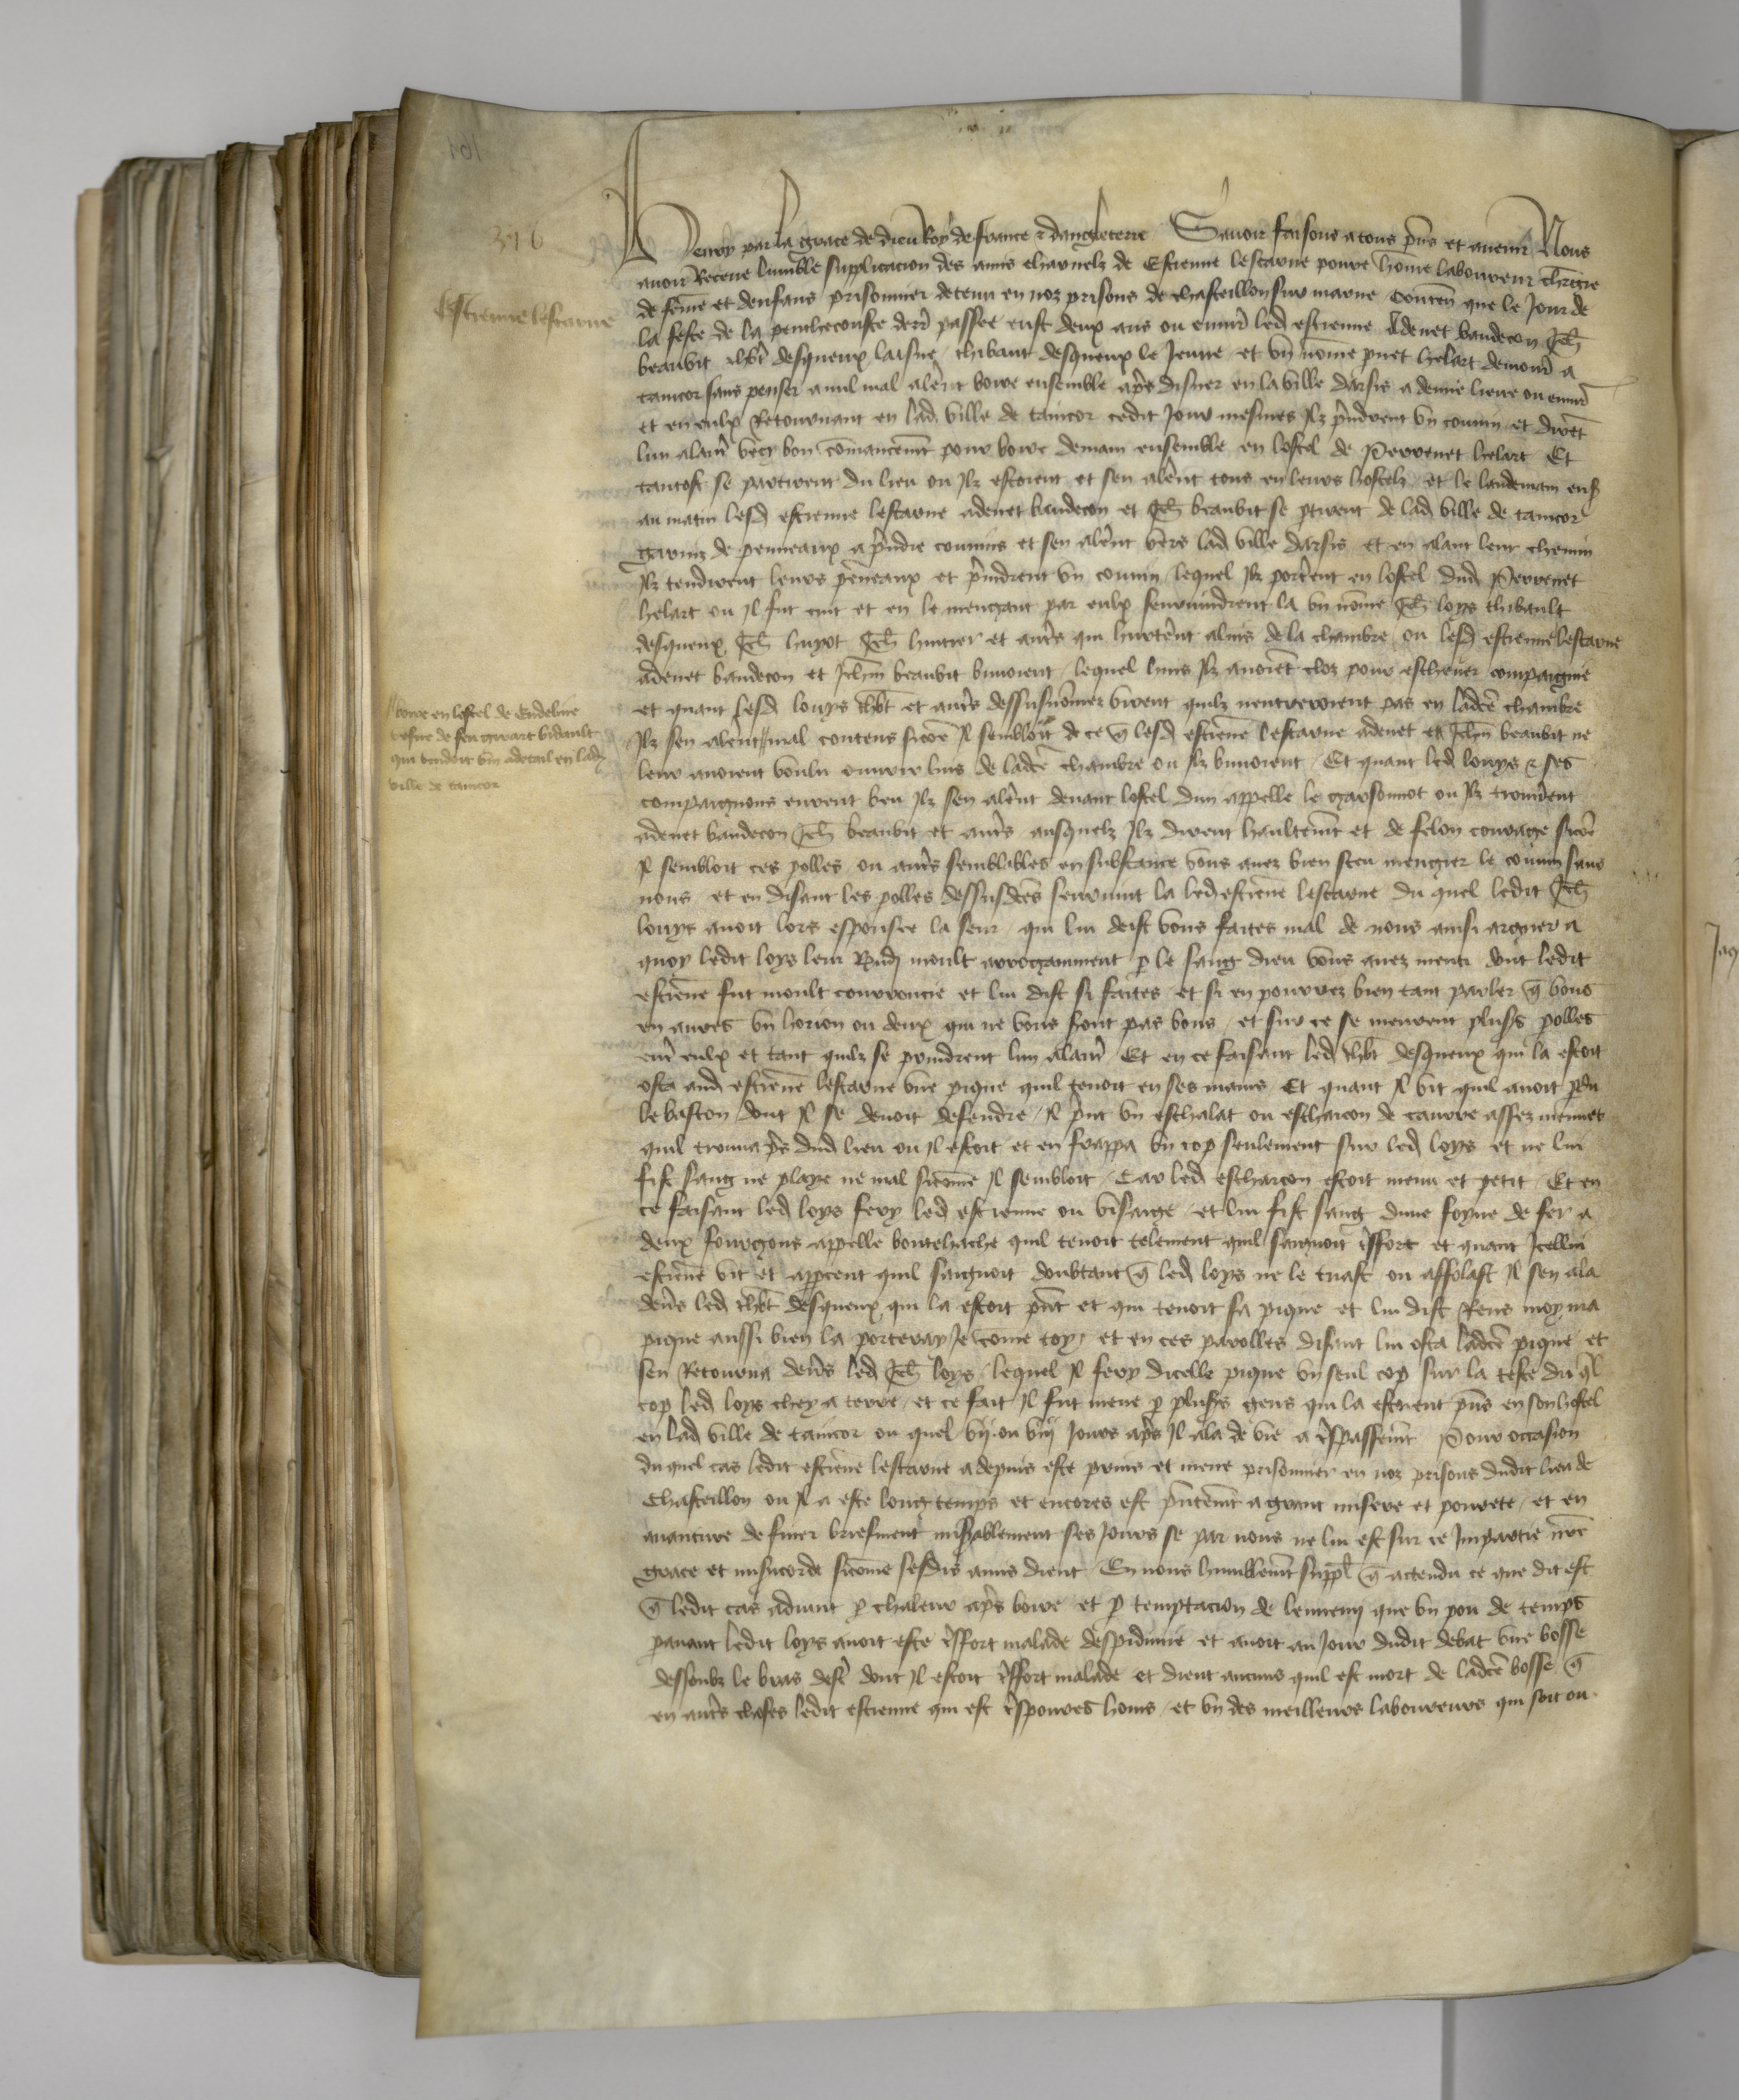 316
Estienne lestarne
Henry par la grace de dieu Roy de france & dangleterre Savoir faisons a tous pns et avenir Nous
avoir Receue lumble supplicacion des amis charnelz de Estienne lestarne povre home laboureur chrgie
de feme et denfans prisonnier detenu en noz prisons de chasteillon sur marne Conten que le Jour de
la feste de la penthecouste derr passee eust deux ans ou envir led estienne Adenet baudecon Jeh
beaubit thibt desqueux laisne thibaut desqueux le Jeune et un nome pnet helart demour a
tamcor sans penser a nul mal alerent boire ensemble apres disner en la ville darsis a demie lieue ou envir
et en eulx Retournant en lad ville de tamcor cedit jour mesmes Ilz prindrent un connin et diret
lun alautr vecy bon comancemt pour boire demain ensemble en lostel de Perrenet helart Et
tantost se partirent du lieu ou Ilz estoient et sen alerent tous en leurs hostelz et le landemain ens
au matin lesd estienne lestarne adenet baudecon et Jeh beaubit se ptirent de lad ville de tamcor
garniz de penneaux a prendre connins et sen alerent vers lad ville darsis et en alant leur chemin
Ilz tendirent leurs peneaux et prindrent un connin lequel Ilz porterent en lostel dud Perrenet
helart ou Il fut cuit et en le mengant par eulx seurvindrent la un nome Jeh loys thibault
desqueux Jeh huyot Jeh hutier et autrs qui hurterent a luis de la chambre ou lesd estienne lestarne
adenet baudecon et Jehan beaubit buvoient lequel huis Ilz avoiet cloz pour eschever compaignie
et quant lesd louys thibt et autrs dessusnomez virent quilz nentreroient pas en ladce chambre
Ilz sen alerent mal contens sicoe Il sembloit de ce q lesd estiene lestarne adenet et Jehan beaubit ne
leur avoient voulu ouvrir luis de ladce chambre ou Ilz buvoient Et quant led louys & ses
compaignons eurent beu Ilz sen alerent devant lostel dun appelle le garsonnot ou Ilz trouverent
adenet baudecon Jeh beaubit et autrs ausquelz Ilz dirent haultemt et de felon courage sicoe
Il sembloit ces polles ou autrs semblables en substance vous avez bien sceu mengier le connin sans
nous et en disant les polles dessusdces seurvint la led estiene lestarne du quel ledit Jeh
louys avoit lors espousee la seur qui lui deist vous faites mal de nous ainsi arguer a
quoy ledit loys leur Rndi moult arrogamment p le sang dieu vous avez menti dont ledit
estiene fut moult courroucie et lui dist si faites et si en pourrez bien tant parler q vous
en aures un horion ou deux qui ne vous sont pas bons et sur ce se meurent pluss polles
entr eulx et tant quilz se prindrent lun alautr Et en ce faisant led thibt desqueux qui la estoit
osta aud estiene lestarne une pique quil tenoit en ses mains Et quant Il vit quil avoit pdu
le baston dont Il se devoit defendre Il prnt un eschalat ou escharcon de carre assez menuet
quil trouva prs dud lieu ou Il estoit et en frappa un cop seulement sur led loys et ne lui
fist sang ne playe ne mal sicome Il sembloit Car led escharcon estoit menu et petit Et en
ce faisant led loys fery led estienne ou visaige et lui fist sang dune foyne de fer a
deux fourgons appelle boutehache quil tenoit telement quil saignoit trsfort et quant Icellui
estiene vit et appcent quil saignoit doubtant q led loys ne le tuast ou affolast Il sen ala
devrs led thibt desqueux qui la estoit prnt et qui tenoit sa pique et lui dist Rens moy ma
pique aussi bien la porteray Je come toy et en ces parolles disant lui osta ladce pique et
sen Retourna devrs led Jeh loys lequel Il fery dicelle pique un seul cop sur la teste du ql
cop led loys chey a terre et ce fait Il fut mene p pluss gens qui la estoient pns en son hostel
en lad ville de tamcor ou quel vij ou viij Jours aprs Il ala de vie a trspassemt Pour occasion
du quel cas ledit estiene lestarne a depuis este prins et mene prisonnier en noz prisons dudit lieu de
Chasteillon ou Il a este long temps et encores est pntemt a grant misere et povrete et en
avanture de finer briefment misablement ses Jours se par nous ne lui est sur ce Impartie nre
grace et misicorde sicome sesdis amis dient En nous humblemt suppl q actendu ce que dit est
q ledit cas advint p chaleur aprs boire et p temptacion de lennemy que un pou de temps
pavant ledit loys avoit este trsfort malade despidimie et avoit au Jour dudit debat une bosse
dessoubz le bras destr dont Il estoit trsfort malade et dient aucuns quil est mort de ladce bosse q
en autrs choses ledit estienne qui est trspovres homs et un des meilleurs laboureurs qui soit ou
boire en lostel de Endeline
vefve de feu girart bidault
qui vendoit vin a detail en lad
ville de tamcor